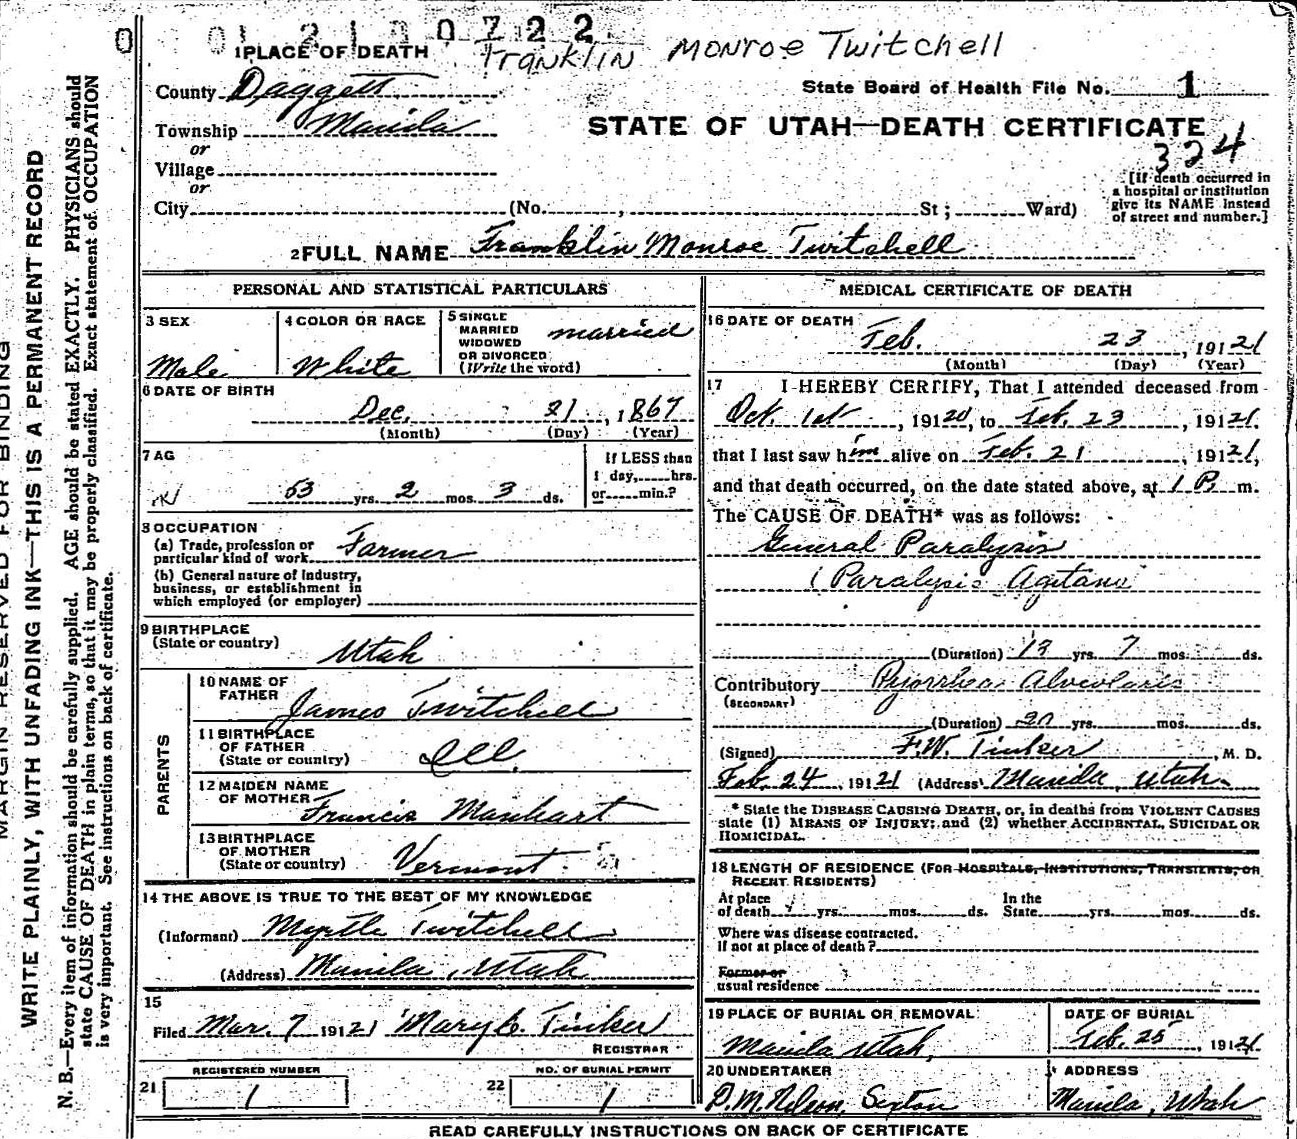 0 01 21 00722
1 PLACE OF DEATH Franklin Monroe Twitchell
County Daggett State Board of Health File No. 1
Township Manila STATE OF UTAH—DEATH CERTIFICATE
or 324
Village
or
City (No. , St ; Ward)
[If death occurred in
a hospital or institution
give its NAME instead
of street and number.]
2 FULL NAME Franklin Monroe Twitchell
PERSONAL AND STATISTICAL PARTICULARS
3 SEX Male
4 COLOR OR RACE White
5 SINGLE
MARRIED
WIDOWED
OR DIVORCED
(Write the word) married
6 DATE OF BIRTH
Dec. 21, 1867
(Month) (Day) (Year)
7 AG
53 yrs. 2 mos. 3 ds.
If LESS than
1 day, hrs.
or min.?
8 OCCUPATION
(a) Trade, profession or
particular kind of work Farmer
(b) General nature of Industry,
business, or establishment in
which employed (or employer)
9 BIRTHPLACE
(State or country) Utah
PARENTS
10 NAME OF
FATHER James Twitchell
11 BIRTHPLACE
OF FATHER
(State or country) Ill.
12 MAIDEN NAME
OF MOTHER Francis Manhart
13 BIRTHPLACE
OF MOTHER
(State or country) Vermont
14 THE ABOVE IS TRUE TO THE BEST OF MY KNOWLEDGE
(Informant) Myrtle Twitchell
(Address) Manila, Utah
15
Filed Mar. 7 19121 Mary C. Tinker
REGISTRAR
21 REGISTERED NUMBER 1
22 NO. OF BURIAL PERMIT 1
MEDICAL CERTIFICATE OF DEATH
16 DATE OF DEATH
Feb. 23, 19121
(Month) (Day) (Year)
17 I HEREBY CERTIFY, That I attended deceased from
Oct. 1st, 19120, to Feb. 23, 19121.
that I last saw him alive on Feb. 21, 19121,
and that death occurred, on the date stated above, at 1 P. m.
The CAUSE OF DEATH* was as follows:
General Paralysis
(Paralysis Agitans
(Duration) 13 yrs. 7 mos. ds.
Contributory Pyorrhea Alveolaris
(SECONDARY)
(Duration) 20 yrs. mos. ds.
(Signed) F.W. Tinker, M. D.
Feb. 24, 19121 (Address) Manila, Utah
* State the DISEASE CAUSING DEATH, or, in deaths from VIOLENT CAUSES
state (1) MEANS OF INJURY; and (2) whether ACCIDENTAL, SUICIDAL OR
HOMICIDAL.
18 LENGTH OF RESIDENCE (FOR HOSPITALS, INSTITUTIONS, TRANSIENTS, OR
RECENT RESIDENTS)
At place
of death yrs. mos. ds. In the
State yrs. mos. ds.
Where was disease contracted.
if not at place of death?
Former or
usual residence
19 PLACE OF BURIAL OR REMOVAL
Manila Utah,
DATE OF BURIAL
Feb. 25, 19121
20 UNDERTAKER
P.M. Nelson, Sexton
ADDRESS
Manila, Utah
READ CAREFULLY INSTRUCTIONS ON BACK OF CERTIFICATE
MARGIN RESERVED FOR BINDING
WRITE PLAINLY, WITH UNFADING INK—THIS IS A PERMANENT RECORD
N. B.—Every item of information should be carefully supplied. AGE should be stated EXACTLY. PHYSICIANS should
state CAUSE OF DEATH in plain terms, so that it may be properly classified. Exact statement of OCCUPATION
is very important. See instructions on back of certificate.